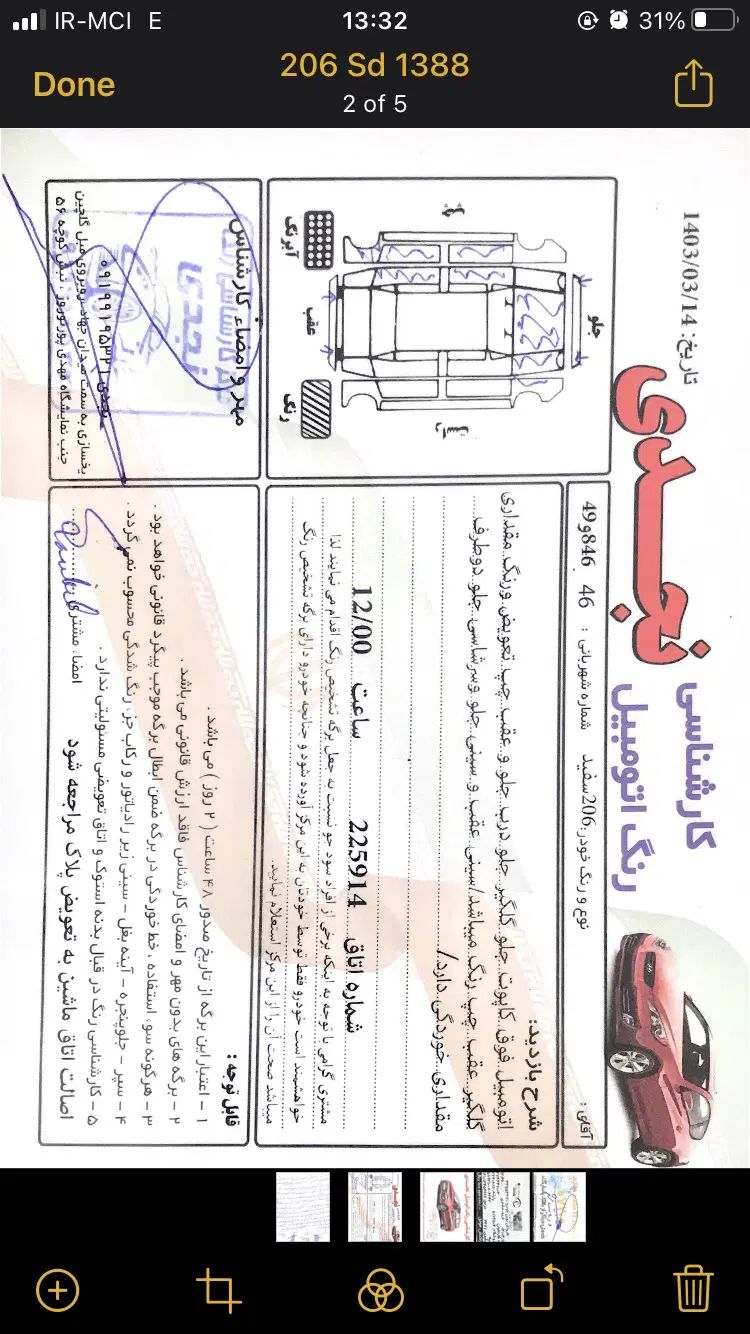 IR-MCI E
13:32
31%
Done
206 Sd 1388
2 of 5
کارشناسی
رنگ اتومبیل
نجدی
تاریخ: 1403/03/14
آقای :
نوع و رنگ خودر:206سفید
شماره شهربانی : 46 846و49
شرح بازدید:
اتومبیل فوق کاپوت جلو گلگیر جلو درب جلو و عقب چپ تعویض ورنگ مقداری
گلگیر عقب چپ رنگ میباشد/سینی عقب و سینی جلو وسرشاسی جلو دوطرف
مقداری خوردگی دارد/
شماره اتاق 225914 ساعت 12/00
مشتری گرامی با توجه به اینکه برخی از افراد سود جو نسبت به جعل برگه تشخیص رنگ اقدام می نمایند لذا
خواهشمند است خودرو فقط توسط خودتان به این مرکز آورده شود و چنانچه خودرو دارای برگه تشخیص رنگ
میباشد صحت آن را از این مرکز استعلام نمایید.
جلو
عقب
راست
رنگ
آبرنگ
قابل توجه :
۱ – اعتبار این برگه از تاریخ صدور ۴۸ ساعت ( ۲ روز ) می باشد .
۲ – برگه های بدون مهر و امضای کارشناس فاقد ارزش قانونی می باشد .
۳ – هرگونه سوء استفاده ، خط خوردگی در برگه ضمن ابطال برگه موجب پیگرد قانونی خواهد بود .
۴ – سپر – جلوپنجره – آینه بغل – سینی زیر رادیاتور و رکاب جزء رنگ شدگی محسوب نمی گردد .
۵ – کارشناسی رنگ در قبال بدنه استوک و اتاق تعویضی مسئولیتی ندارد .
امضاء مشتری
اصالت اتاق ماشین به تعویض پلاک مراجعه شود
مهر و امضاء کارشناس
نجدی
نجدی ۰۹۱۹۹۱۹۵۳۲۱
یخسازی به سمت میدان جهاد روبروی مبل گلچین
جنب نمایشگاه مهدی پورنوروز ، نبش کوچه ۵۶